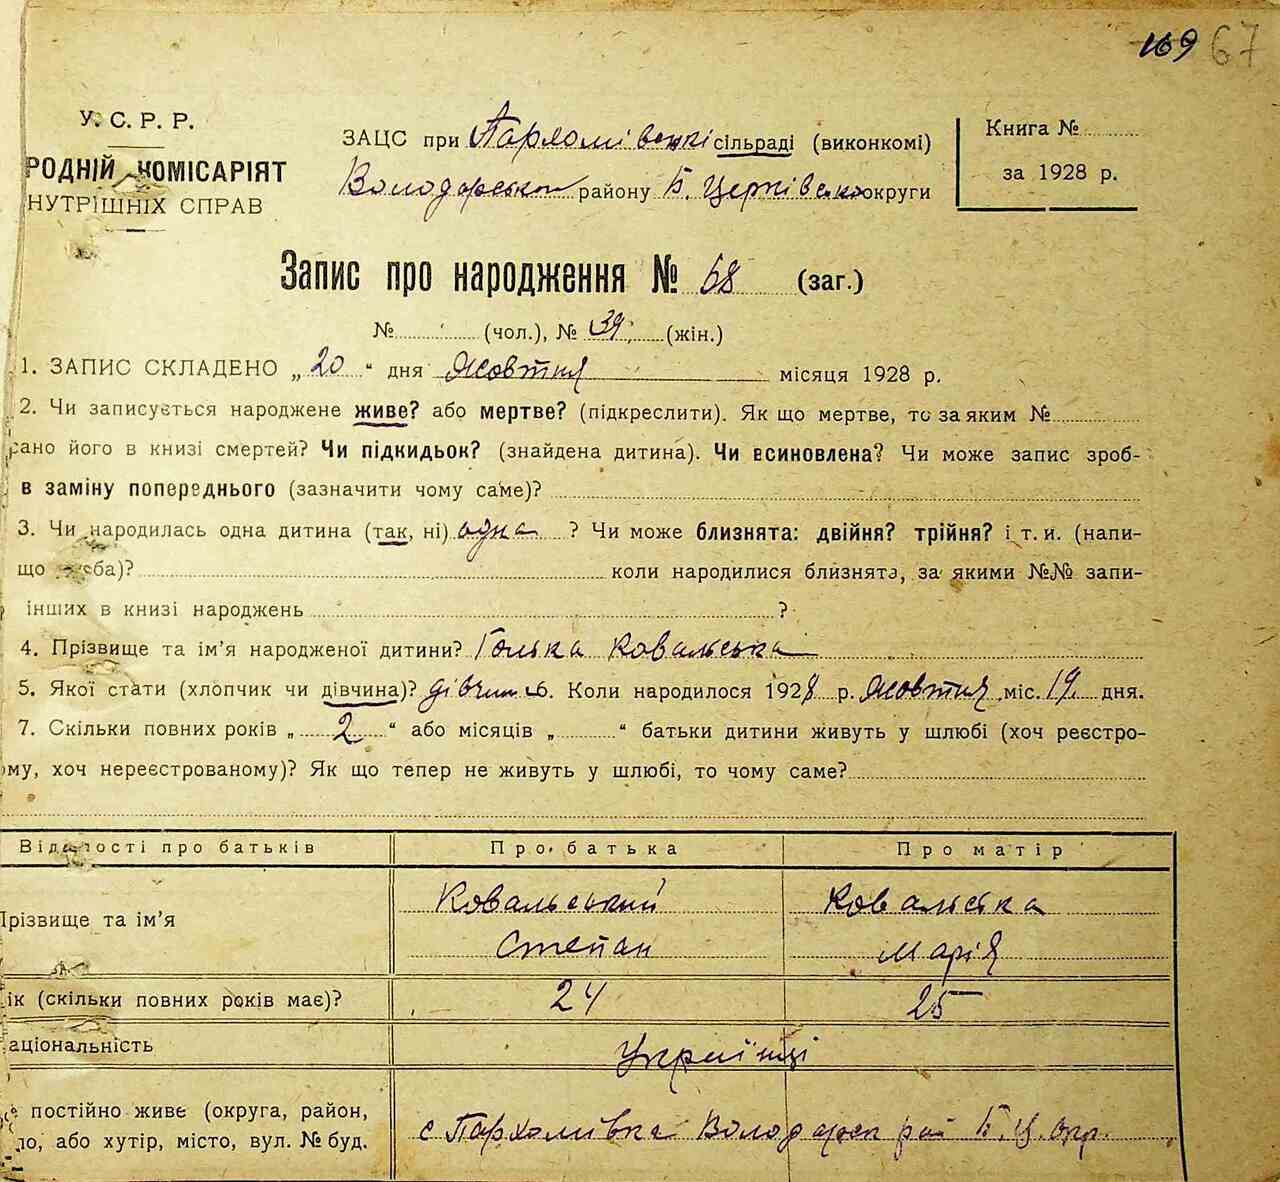 169 67
У. С. Р. Р.
РОДНІЙ КОМІСАРІЯТ
НУТРІШНІХ СПРАВ
ЗАЦС при Пархомівскі сільраді (виконкомі)
Володарського району Б. Церківської округи
Книга №
за 1928 р.
Запис про народження № 58 (заг.)
№ (чол.), № 39, (жін.)
1. ЗАПИС СКЛАДЕНО „20“ дня Жовтня місяця 1928 р.
2. Чи записується народжене живе? або мертве? (підкреслити). Як що мертве, то за яким №
рано його в книзі смертей? Чи підкидьок? (знайдена дитина). Чи всиновлена? Чи може запис зроб-
в заміну попереднього (зазначити чому саме)?
3. Чи народилась одна дитина (так, ні) одна ? Чи може близнята: двійня? трійня? і т. и. (напи-
що треба)? коли народилися близнята, за якими №№ запи-
інших в книзі народжень ?
4. Прізвище та ім'я народженої дитини? Ковальська
5. Якої стати (хлопчик чи дівчина)? дівчина. Коли народилося 1928 р. Жовтня міс. 19 дня.
7. Скільки повних років „2“ або місяців „ “ батьки дитини живуть у шлюбі (хоч реєстро-
ому, хоч нереєстрованому)? Як що тепер не живуть у шлюбі, то чому саме?
Відомості про батьків Про батька Про матір
Прізвище та ім'я Ковальський Ковальська
Степан Марія
ік (скільки повних років має)? 24 25
аціональність Українці
е постійно живе (округа, район,
ло, або хутір, місто, вул. № буд. с Пархомівка Володарск рай Б. Ц. окр.